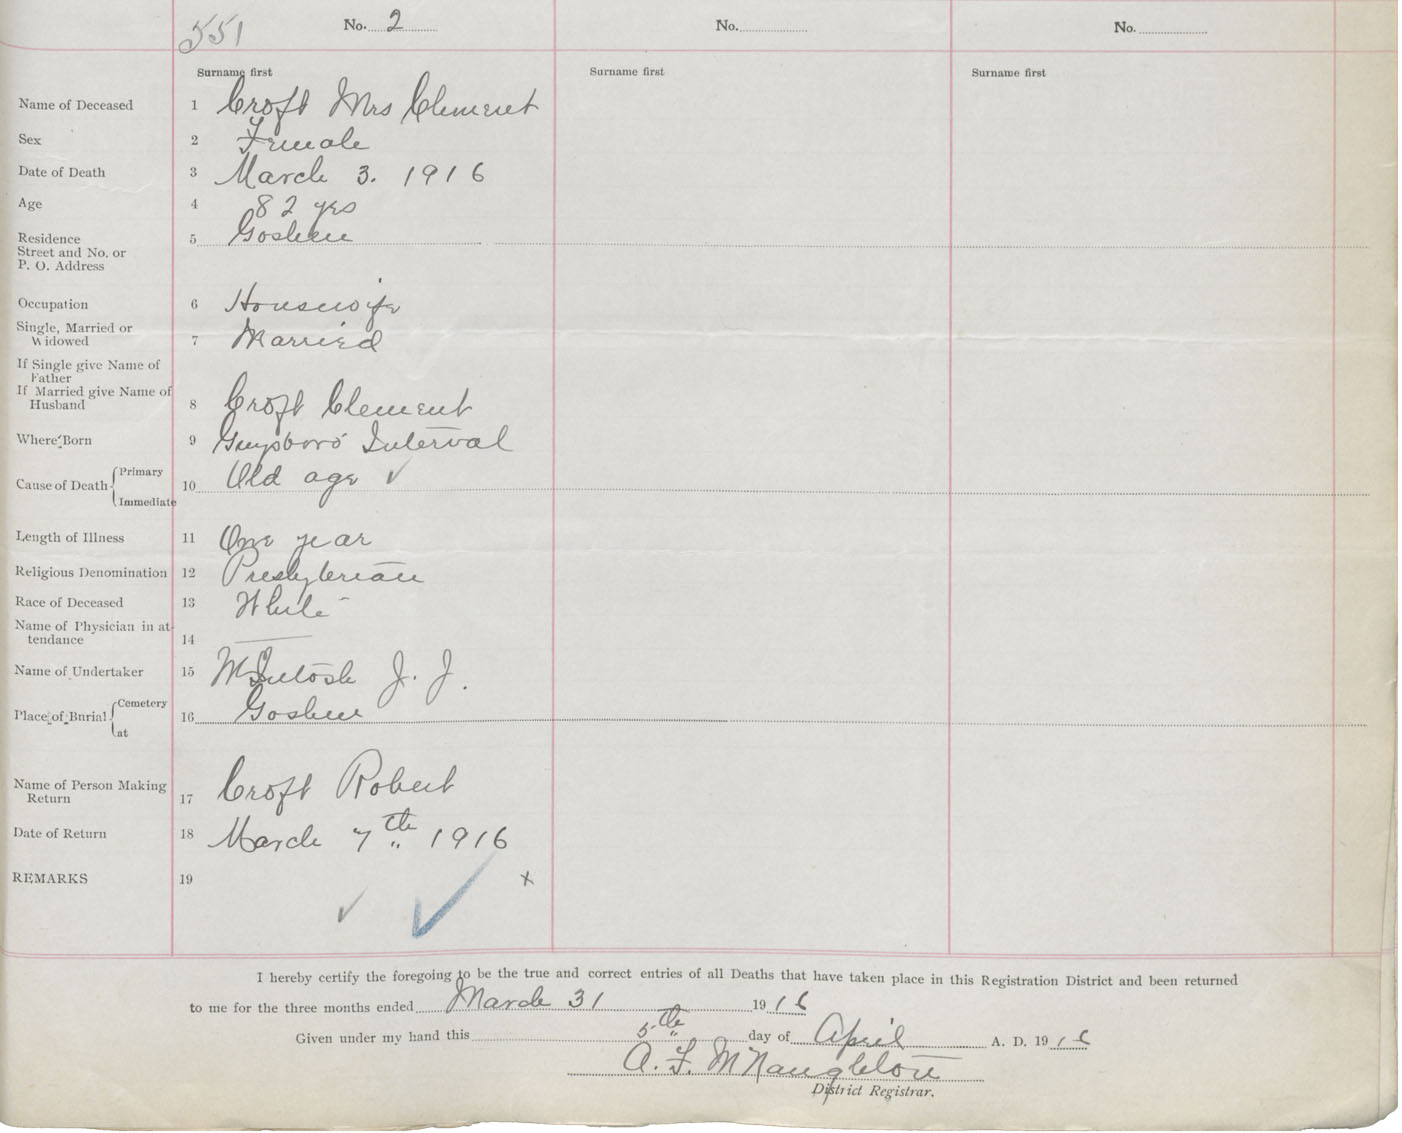 551 No. 2 No. No.
Surname first Surname first Surname first
Name of Deceased 1 Croft Mrs Clement
Sex 2 Female
Date of Death 3 March 3. 1916
Age 4 82 yrs
Residence 5 Goshen
Street and No. or
P. O. Address
Occupation 6 Housewife
Single, Married or
Widowed 7 Married
If Single give Name of
Father
If Married give Name of
Husband 8 Croft Clement
Where Born 9 Guysboro Interval
Cause of Death { Primary 10 Old age ✓
Immediate
Length of Illness 11 One year
Religious Denomination 12 Presbyterian
Race of Deceased 13 White
Name of Physician in at-
tendance 14 —
Name of Undertaker 15 McIntosh J. J.
Place of Burial { Cemetery 16 Goshen
at
Name of Person Making
Return 17 Croft Robert
Date of Return 18 March 7th 1916
REMARKS 19 x
✓ ✓
I hereby certify the foregoing to be the true and correct entries of all Deaths that have taken place in this Registration District and been returned
to me for the three months ended March 31 1916
Given under my hand this 5th day of April A. D. 1916
A. F. McNaughton
District Registrar.